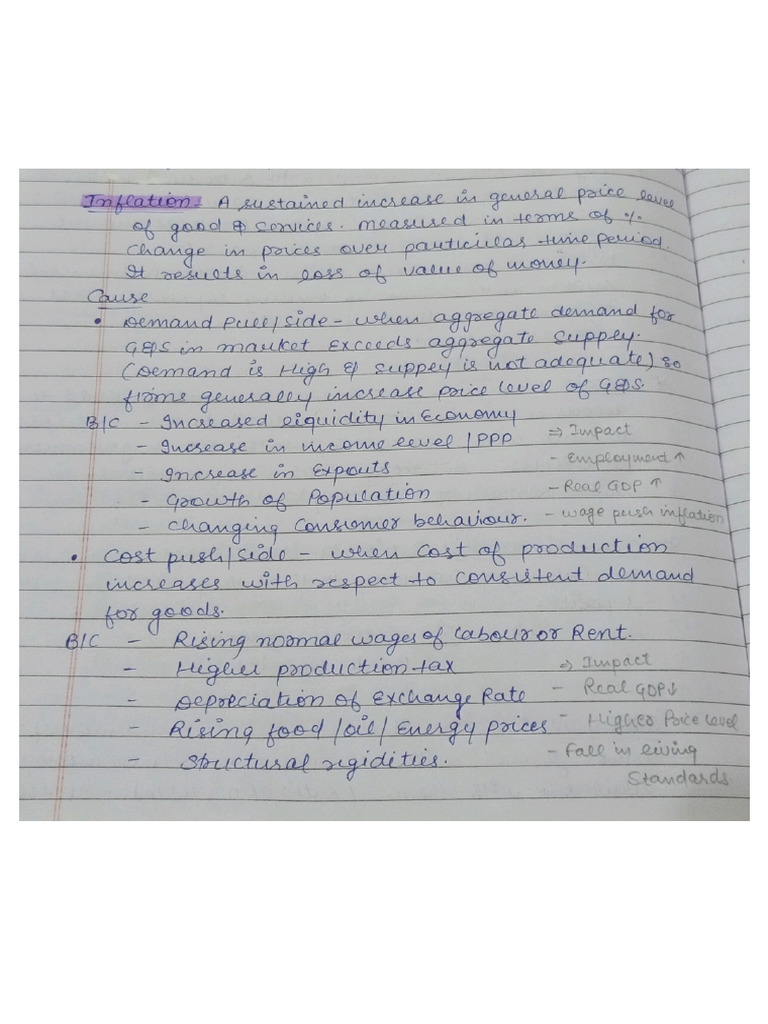 Inflation - A sustained increase in general price level
of good & services. measured in terms of %
change in prices over particular time period.
It results in loss of value of money.
Cause
• Demand Pull/Side - when aggregate demand for
G&S in market exceeds aggregate supply.
(Demand is High & supply is not adequate) so
firms generally increase price level of G&S.
B/C - Increased liquidity in Economy
- Increase in income level / PPP ⇒ Impact
- Increase in Exports - Employment ↑
- Growth of Population - Real GDP ↑
- Changing Consumer behaviour. - wage push inflation
• Cost push/side - when Cost of production
increases with respect to consistent demand
for goods.
B/C - Rising normal wages of labour or Rent.
- Higher production tax ⇒ Impact
- Depreciation of Exchange Rate - Real GDP↓
- Rising food /oil/ Energy prices - Higher Price level
- Structural rigidities. - Fall in living
Standards